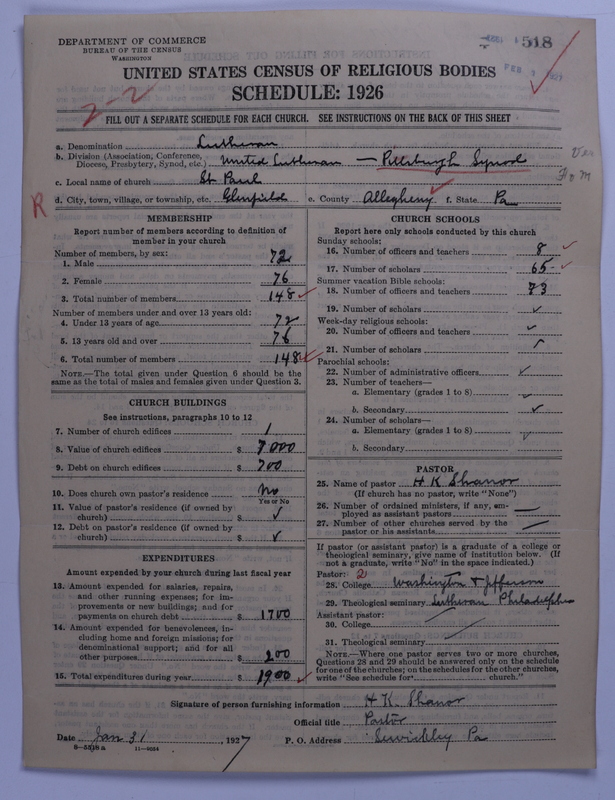 DEPARTMENT OF COMMERCE
BUREAU OF THE CENSUS
WASHINGTON
518
FEB
UNITED STATES CENSUS OF RELIGIOUS BODIES
SCHEDULE: 1926
2-2
FILL OUT A SEPARATE SCHEDULE FOR EACH CHURCH. SEE INSTRUCTIONS ON THE BACK OF THIS SHEET
a. Denomination Lutheran
b. Division (Association, Conference, Diocese, Presbytery, Synod, etc.) United Lutheran — Pittsburgh Synod
c. Local name of church St Paul
R
d. City, town, village, or township, etc. Glenfield e. County Allegheny f. State Pa
MEMBERSHIP
Report number of members according to definition of
member in your church
Number of members, by sex:
1. Male 72
2. Female 76
3. Total number of members 148
Number of members under and over 13 years old:
4. Under 13 years of age 72
5. 13 years old and over 76
6. Total number of members 148
NOTE.—The total given under Question 6 should be
same as the total of males and females given under Question 3.
CHURCH BUILDINGS
See instructions, paragraphs 10 to 12
7. Number of church edifices 1
8. Value of church edifices $ 7000
9. Debt on church edifices $ 700
10. Does church own pastor's residence No
Yes or No
11. Value of pastor's residence (if owned by
church) $ ✓
12. Debt on pastor's residence (if owned by
church) $ ✓
EXPENDITURES
Amount expended by your church during last fiscal year
13. Amount expended for salaries, repairs,
and other running expenses; for im-
provements or new buildings; and for
payments on church debt $ 1700
14. Amount expended for benevolences, in-
cluding home and foreign missions; for
denominational support; and for all
other purposes $ 200
15. Total expenditures during year $ 1900
CHURCH SCHOOLS
Report here only schools conducted by this church
Sunday schools:
16. Number of officers and teachers 8
17. Number of scholars 65
Summer vacation Bible schools:
18. Number of officers and teachers 73
19. Number of scholars ✓
Week-day religious schools:
20. Number of officers and teachers ✓
21. Number of scholars ✓
Parochial schools:
22. Number of administrative officers ✓
23. Number of teachers—
a. Elementary (grades 1 to 8) ✓
b. Secondary ✓
24. Number of scholars—
a. Elementary (grades 1 to 8) ✓
b. Secondary
PASTOR
25. Name of pastor H K Shanor
(If church has no pastor, write "None")
26. Number of ordained ministers, if any, em-
ployed as assistant pastors —
27. Number of other churches served by the
pastor or his assistants —
If pastor (or assistant pastor) is a graduate of a college or
theological seminary, give name of institution below. (If
not a graduate, write "No" in the space indicated.)
Pastor: 2
28. College Washington & Jefferson
29. Theological seminary Lutheran Philadelphia
Assistant pastor:
30. College
31. Theological seminary
NOTE.—Where one pastor serves two or more churches,
Questions 28 and 29 should be answered only on the schedule
for one of the churches; on the schedules for the other churches,
write "See schedule for church."
Signature of person furnishing information H K. Shanor
Official title Pastor
Date Jan 31, 1927 P. O. Address Sewickley Pa
8-5518a 11-9034